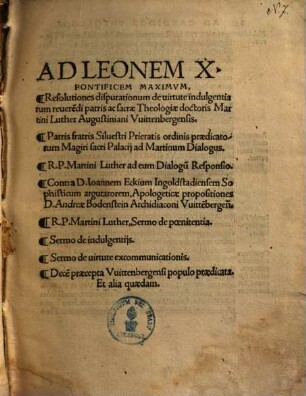 AD LEONEM X.
PONTIFICEM MAXIMVM,
¶Resolutiones disputationum de uirtute indulgentia
rum reuerēdi patris ac sacræ Theologiæ doctoris Mar
tini Luther Augustiniani Vuittenbergensis.
¶Patris fratris Siluestri Prieratis ordinis prædicato-
rum Magiri sacri Palacij ad Martinum Dialogus.
¶R.P.Martini Luther ad eum Dialogū Responsio.
¶Contra D.Ioannem Eckium Ingoldstadiensem So
phisticum argutatorem, Apologeticæ propositiones
D.Andreæ Bodenstein Archidiaconi Vuittēbergeñ.
¶R.P.Martini Luther, Sermo de pœnitentia.
¶Sermo de indulgentijs.
¶Sermo de uirtute excommunicationis.
¶Decē præcepta Vuittenbergensi populo prædicata.
Et alia quædam.